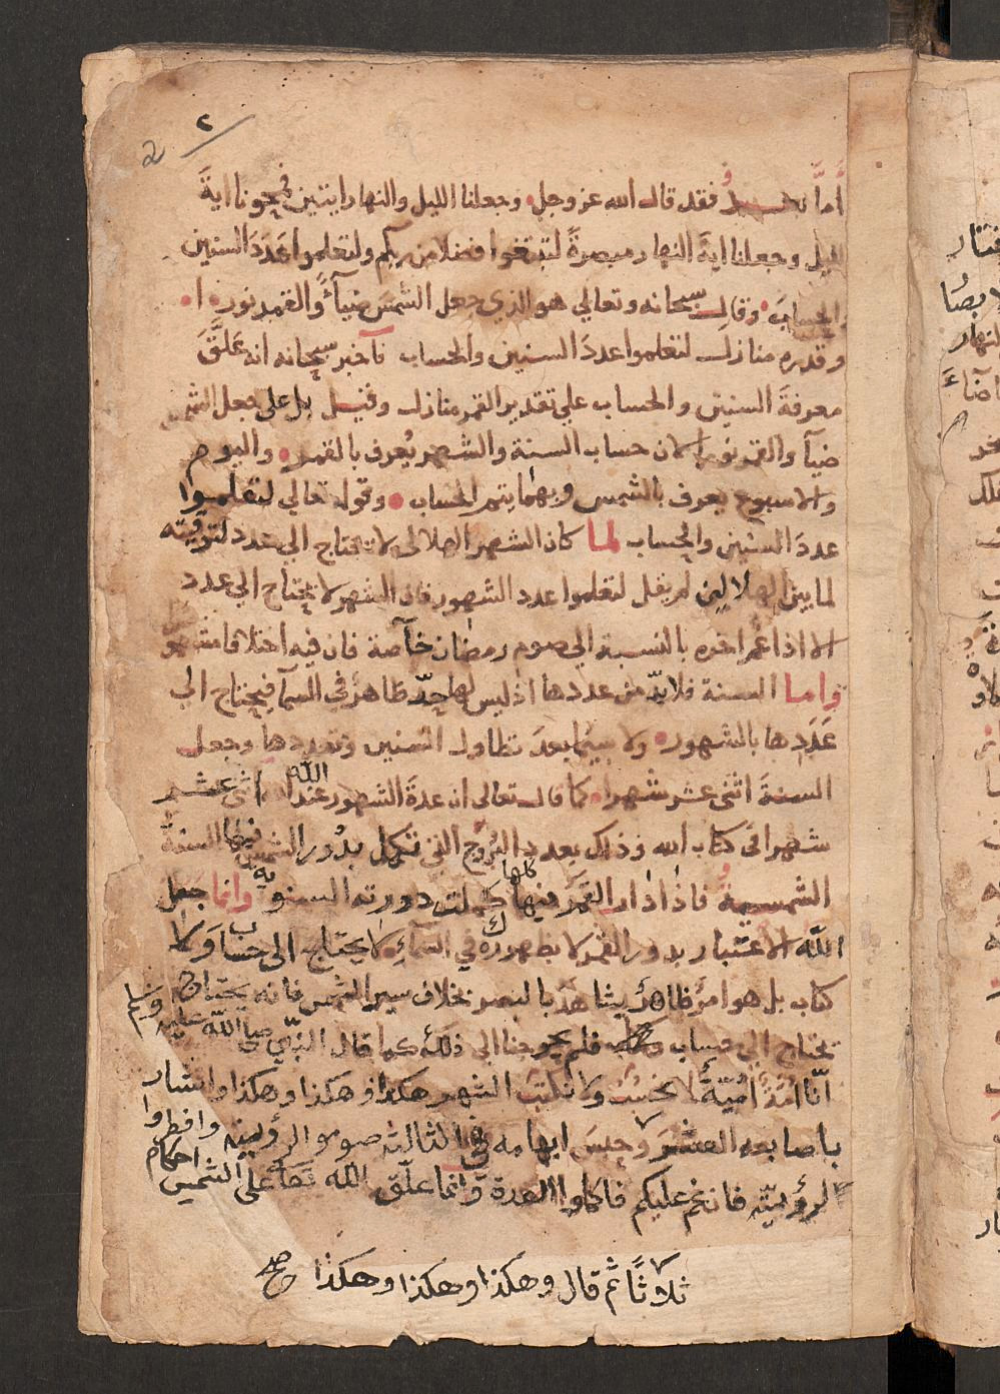 ٢
2
أما بعد فقد قال الله عز وجل وجعلنا الليل والنهار ايتين فمحونا ايةَ
الليل وجعلنا ايةَ النهار مبصرةً لتبتغوا فضلا من ربكم ولتعلموا عَدَدَ السنين
والحسابَ وقال سبحانه وتعالي هو الذي جعل الشمسَ ضيآءً والقمر نورا
وقدره منازل لتعلموا عددَ السنين والحساب فآخبر سبحانه انه عَلَّقَ
معرفةَ السنين والحساب علي تقدير القمر منازل وقيل بل على جعل الشمس
ضيآ والقمر نورا لان حساب السنة والشهر يُعرف بالقمر واليوم
والاسبوع يعرف بالشمس وبهما يتم الحساب وقوله تعالي لتعلموا
عددَ السنين والحساب لما كان الشهر الهلالى لا يحتاج الي عدد لتوقيته
لما بين الهلالين لم يقل لتعلموا عدد الشهور فان الشهر لا يحتاج الي عدد
الا اذا غُم اخره بالنسبة الي صوم رمضان خآصة فان فيه اختلافا مشهو
واما السنة فلا بدّ من عددها اذ ليس لها حدّ ظاهرٌ في السمآ فيحتاج الي
عَدَدِها بالشهور ولا سيما بعدَ تطاول السنين وتعددها وجعل
السنةَ اثنى عشر شهرا كما قال تعالى ان عدةَ الشهور عند الله اثنى عشر
شهرا فى كتاب الله وذلك بعدد البُرُوج التي تكمل بدور الشمس فيها السنةُ
الشمسيةُ فاذا دار القمر فيها كلها كملت دورته السنوية وانما جعل
الله الاعتبار بدور القمر لا بظهوره في السمآء لا يحتاج الى حساب ولا
كتاب بل هو امرٌ ظاهرٌ يشاهَدُ بالبصر بخلاف سير الشمس فانه يحتاج
يحتاج الي حساب وكتاب فلم يحوجنا الي ذلك كما قال النبّي صلى الله عليه وسلم
انّا امّةٌ اُمّيّةٌ لا نحسُبُ ولا نكتبُ الشهر هكذا وهكذا وهكذا واشار
باصابعه العشر وحبسَ ابهامه في الثالثة صوموا لرؤيته وافطروا
لرؤيته فان غم عليكم فاكملوا العدة وانما علّق الله تعا على الشمس احكام
ثلاثًا ثم قال وهكذا وهكذا وهكذا صح